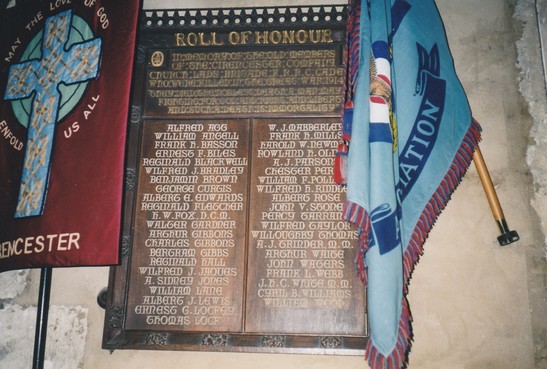 MAY THE LOVE OF GOD
ENFOLD US ALL
RENCESTER
ROLL OF HONOUR
IN MEMORY OF THE OLD MEMBERS
OF THE CIRENCESTER COMPANY
CHURCH LADS BRIGADE
ALFRED AGG
WILLIAM ANGELL
FRANK H. BASSON
ERNEST F. BILES
REGINALD BLACKWELL
WILFRED J. BRADLEY
BENJAMIN BROWN
GEORGE CURTIS
ALBERT E. EDWARDS
REGINALD FLETCHER
H. W. FOX, D.C.M.
WALTER GARDNER
ARTHUR GIBBONS
CHARLES GIBBONS
BERTRAM GIBBS
REGINALD HALL
WILFRED J. JAQUES
A. SIDNEY JONES
WILLIAM LANE
ALBERT J. LEWIS
ERNEST G. LOCKEY
THOMAS LOCK
W. J. MABBERLEY
FRANK H. MILLS
HAROLD W. NEW
ROWLAND H. OL
A. J. PARSON
CHESTER PER
WILLIAM F. POLL
WILFRED H. RIDDLE
ALBERT ROSE
JOHN V. STONE
PERCY TARRA
WILFRED TAYLOR
WILLOUGHBY THOM
A. J. TRINDER, M.M.
ARTHUR WAITE
JOHN WATERS
FRANK L. WEBB
J. E. C. WHITE M.M.
CYRIL B. WILLIAMS
WILLIAM WOOD
ATION